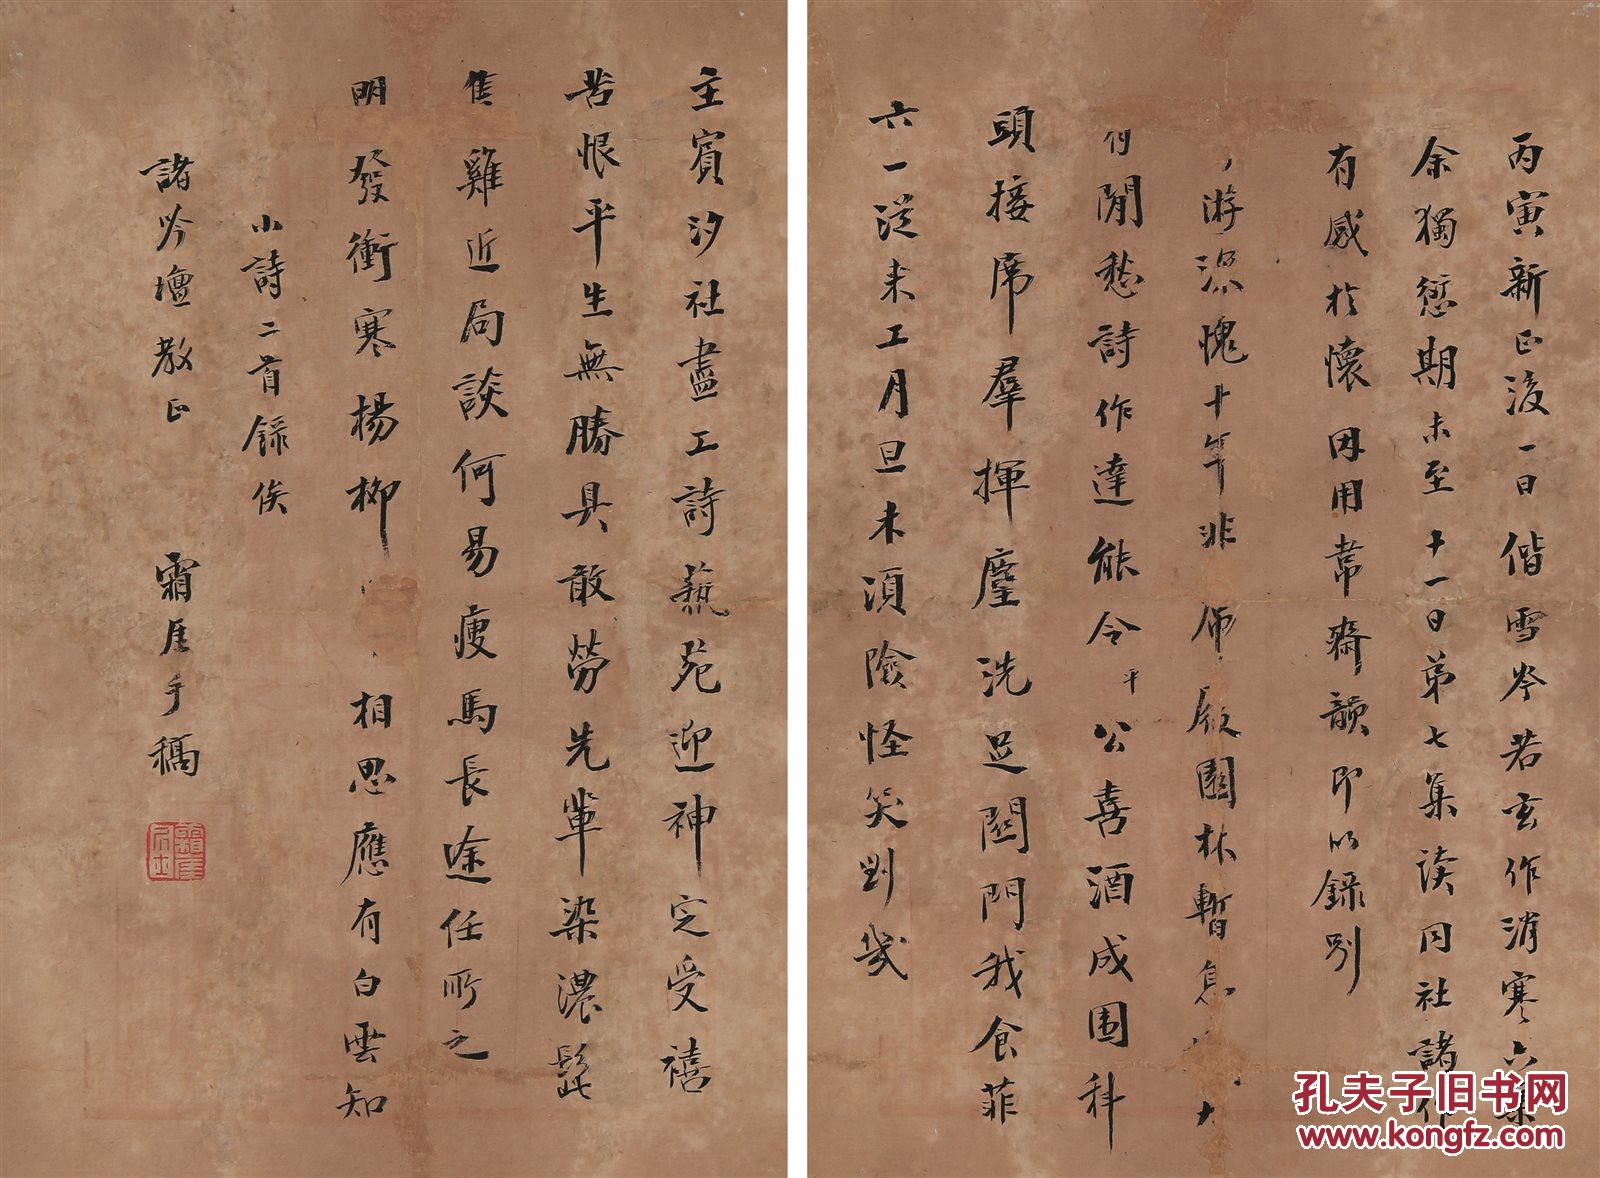 丙寅新正後一日偕雪岑若玄作消寒六集
余獨愆期未至十一日第七集讀同社諸作
有感於懷因用韋齋韻即以錄別
游 愧十年非 願園林暫息
閒愁詩作達能令 公喜酒成围科
頭接席羣揮麈洗足閉門我食菲
六一從来工月旦未須險怪笑劉幾
主賓汐社盡工詩藝苑迎神定受禧
苦恨平生無勝具敢勞先輩染濃髭
隻雞近局談何易瘦馬長途任所之
明發衝寒楊柳 相思應有白雲知
小詩二首錄俟
諸吟壇教正
霜厓手稿
孔夫子旧书网
www.kongfz.com